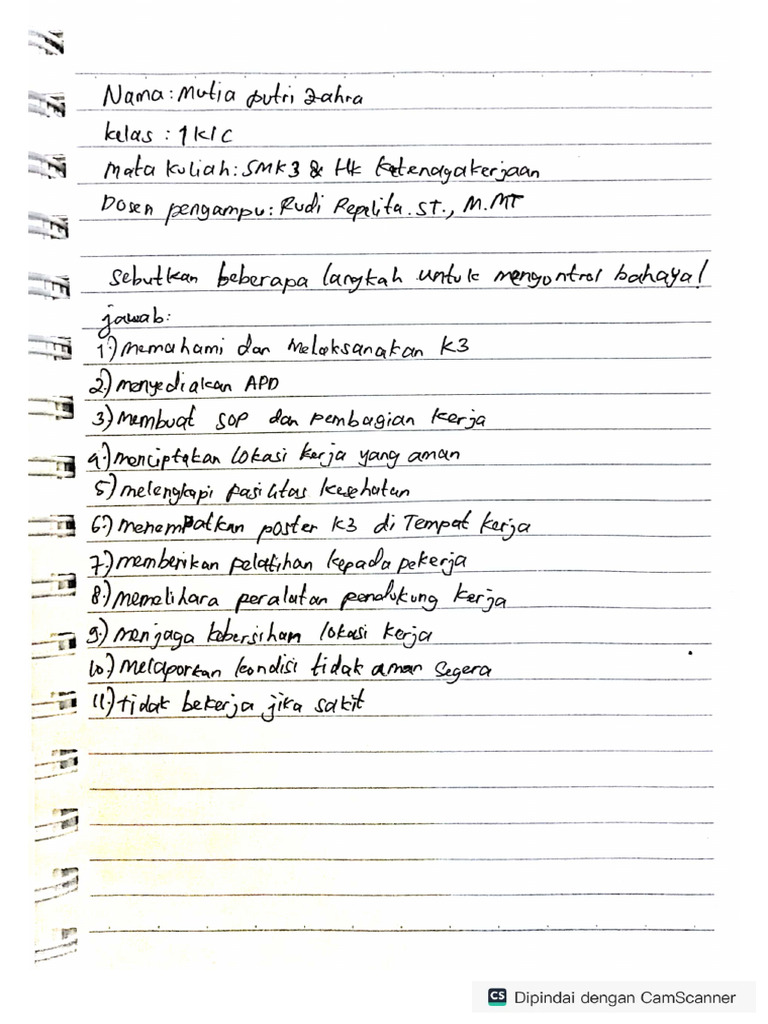 Nama : Mutia putri Zahra
kelas : 1 KIC
Mata kuliah : SMK3 & Hk ketenagakerjaan
Dosen pengampu : Rudi Repelita. ST., M.MT
Sebutkan beberapa langkah untuk mengontrol bahaya!
jawab :
1.) memahami dan Melaksanakan K3
2.) menyediakan APD
3.) Membuat SOP dan pembagian kerja
4.) menciptakan lokasi kerja yang aman
5.) melengkapi pasilitas kesehatan
6.) menempatkan poster K3 di Tempat kerja
7.) memberikan pelatihan kepada pekerja
8.) memelihara peralatan pendukung kerja
9.) menjaga kebersihan lokasi kerja
10.) Melaporkan kondisi tidak aman segera
11.) tidak bekerja jika sakit
CS Dipindai dengan CamScanner